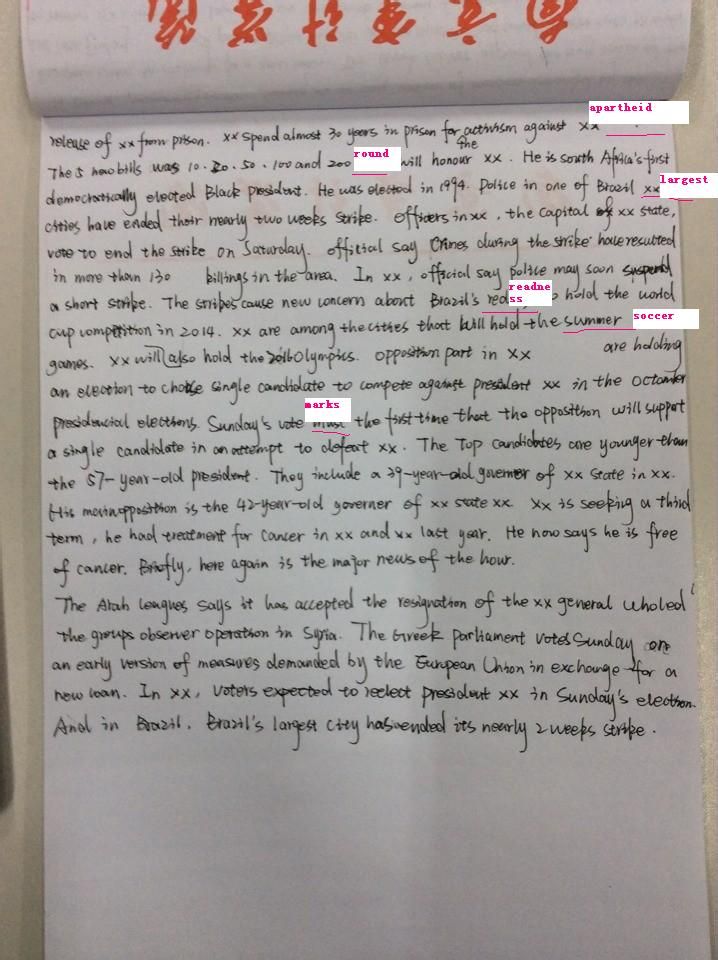 apartheid
release of xx from prison. xx spend almost 30 years in prison for activism against xx
the
The 5 new bills was 10. 20. 50. 100 and 200 round will honour xx. He is South Africa's first
largest
democratically elected Black president. He was elected in 1994. Police in one of Brazil xx
cities have ended their nearly two weeks strike. officers in xx, the capital of xx state,
vote to end the strike on Saturday. official say Crimes during the strike have resulted
in more than 130 killings in the area. In xx, official say police may soon suspend
a short strike. The strikes cause new concern about Brazil's readness to hold the world
cup competition in 2014. xx are among the cities that will hold the summer soccer
games. xx will also hold the 2016 Olympics. opposition part in xx are holding
an election to choose single candidate to compete against president xx in the October
presidencial elections. Sunday's vote marks the first time that the opposition will support
a single candidate in an attempt to defeat xx. The Top candidates are younger than
the 57-year-old president. They include a 39-year-old governer of xx state in xx.
His main opposition is the 42-year-old governer of xx state xx. xx is seeking a third
term, he had treatment for cancer in xx and xx last year. He now says he is free
of cancer. Briefly, here again is the major news of the hour.
The Arab leagues says it has accepted the resignation of the xx general who led
the groups observer operation in Syria. The Greek parliament votes Sunday on
an early version of measures demanded by the European Union in exchange for a
new loan. In xx, voters expected to reelect president xx in Sunday's election.
And in Brazil, Brazil's largest city has ended its nearly 2 weeks strike.